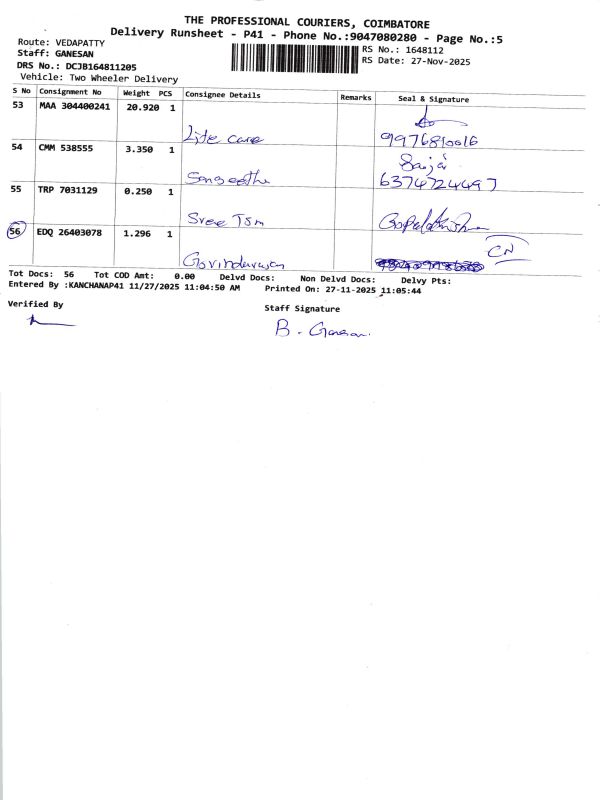 THE PROFESSIONAL COURIERS, COIMBATORE
Delivery Runsheet - P41 - Phone No.:9047080280 - Page No.:5
Route: VEDAPATTY
Staff: GANESAN
DRS No.: DCJB164811205
Vehicle: Two Wheeler Delivery
RS No.: 1648112
RS Date: 27-Nov-2025
S No Consignment No Weight PCS Consignee Details Remarks Seal & Signature
53 MAA 304400241 20.920 1
Lite care 9976810016
54 CMM 538555 3.350 1 Sanjai
Sangeetha 6374724497
55 TRP 7031129 0.250 1
Sree TSM Gopalakrishna
56 EDQ 26403078 1.296 1 CN
Govindarajan
Tot Docs: 56 Tot COD Amt: 0.00 Delvd Docs: Non Delvd Docs: Delvy Pts:
Entered By :KANCHANAP41 11/27/2025 11:04:50 AM Printed On: 27-11-2025 11:05:44
Verified By
Staff Signature
B. Ganesan.